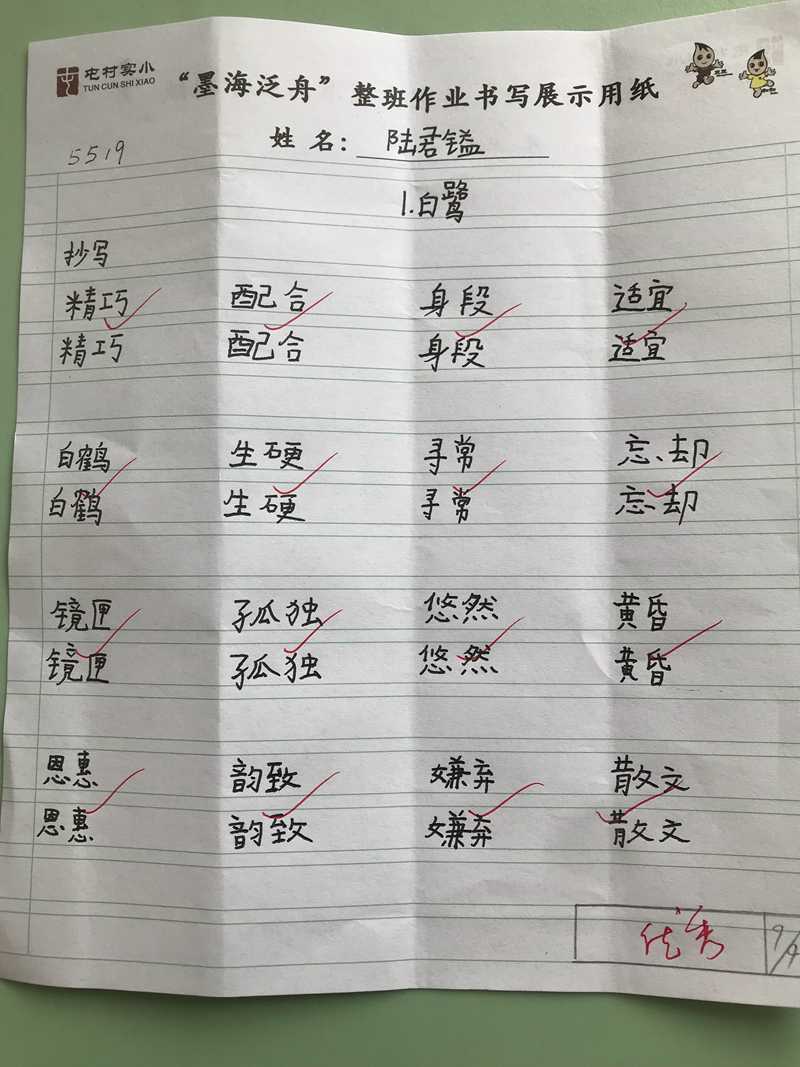 屯村实小
TUN CUN SHI XIAO
“墨海泛舟”整班作业书写展示用纸
姓名：陆君镒
5519
1.白鹭
抄写
精巧 配合 身段 适宜
精巧 配合 身段 适宜
白鹤 生硬 寻常 忘却
白鹤 生硬 寻常 忘却
镜匣 孤独 悠然 黄昏
镜匣 孤独 悠然 黄昏
恩惠 韵致 嫌弃 散文
恩惠 韵致 嫌弃 散文
优秀